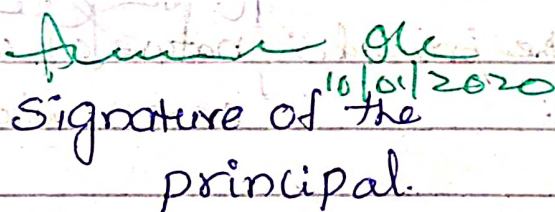 10/01/2020
Signature of the
principal.